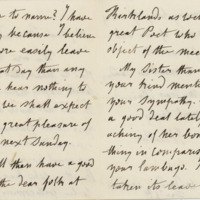 to name? I have
y because I believe
ore easily leave
at day than any
hear nothing to
e shall expect
great pleasure of
next Sunday.
ll there have a good
the dear folk at
as wer
great Poet who
object of the mee
My Sister than
your kind ment
your Sympathy.
a good deal latel
aching of her bon
thing in compares
your lumbago. I
taken its leave